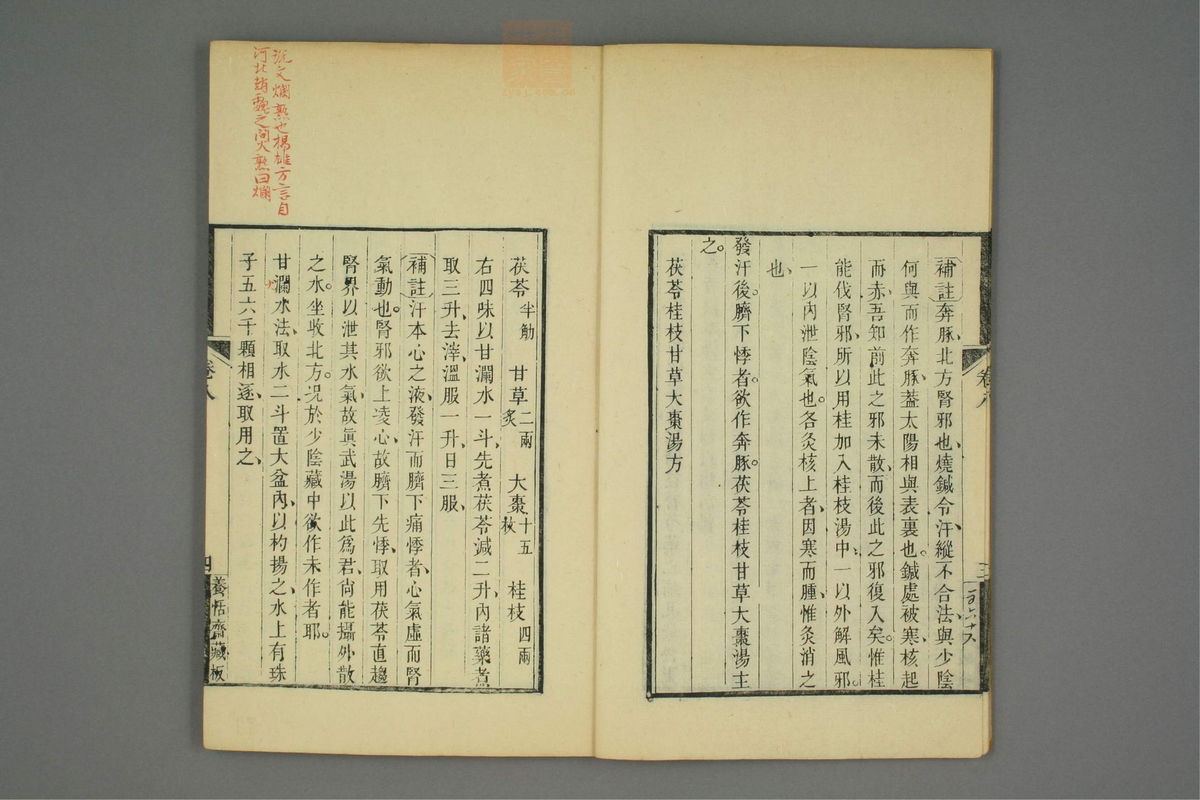 補註奔豚、北方腎邪也、燒鍼令汗、縱不合法、與少陰
何與而作奔豚、蓋太陽相與表裏也。鍼處被寒、核起
而赤、吾知前此之邪未散、而後此之邪復入矣。惟桂
能伐腎邪、所以用桂加入桂枝湯中、一以外解風邪。
一以內泄陰氣也。各灸核上者、因寒而腫、惟灸消之
也、
發汗後。臍下悸者。欲作奔豚。茯苓桂枝甘草大棗湯主
之。
茯苓桂枝甘草大棗湯方
卷八
三
茯苓半觔 甘草二兩炙 大棗十五枚 桂枝四兩
右四味以甘瀾水一斗、先煮茯苓減二升、內諸藥煮
取三升、去滓、溫服一升、日三服、
補註汗本心之液、發汗而臍下痛悸者、心氣虛而腎
氣動也。腎邪欲上凌心、故臍下先悸、取用茯苓直趨
腎界以泄其水氣、故眞武湯以此爲君、尙能攝外散
之水。坐收北方。况於少陰藏中欲作未作者耶。
甘瀾水法、取水二斗置大盆內、以杓揚之、水上有珠
子五六千顆相逐、取用之、
卷八
四
養恬齋藏板
說文爛熟也楊雄方言自
河北趙魏之間火熟曰爛
火